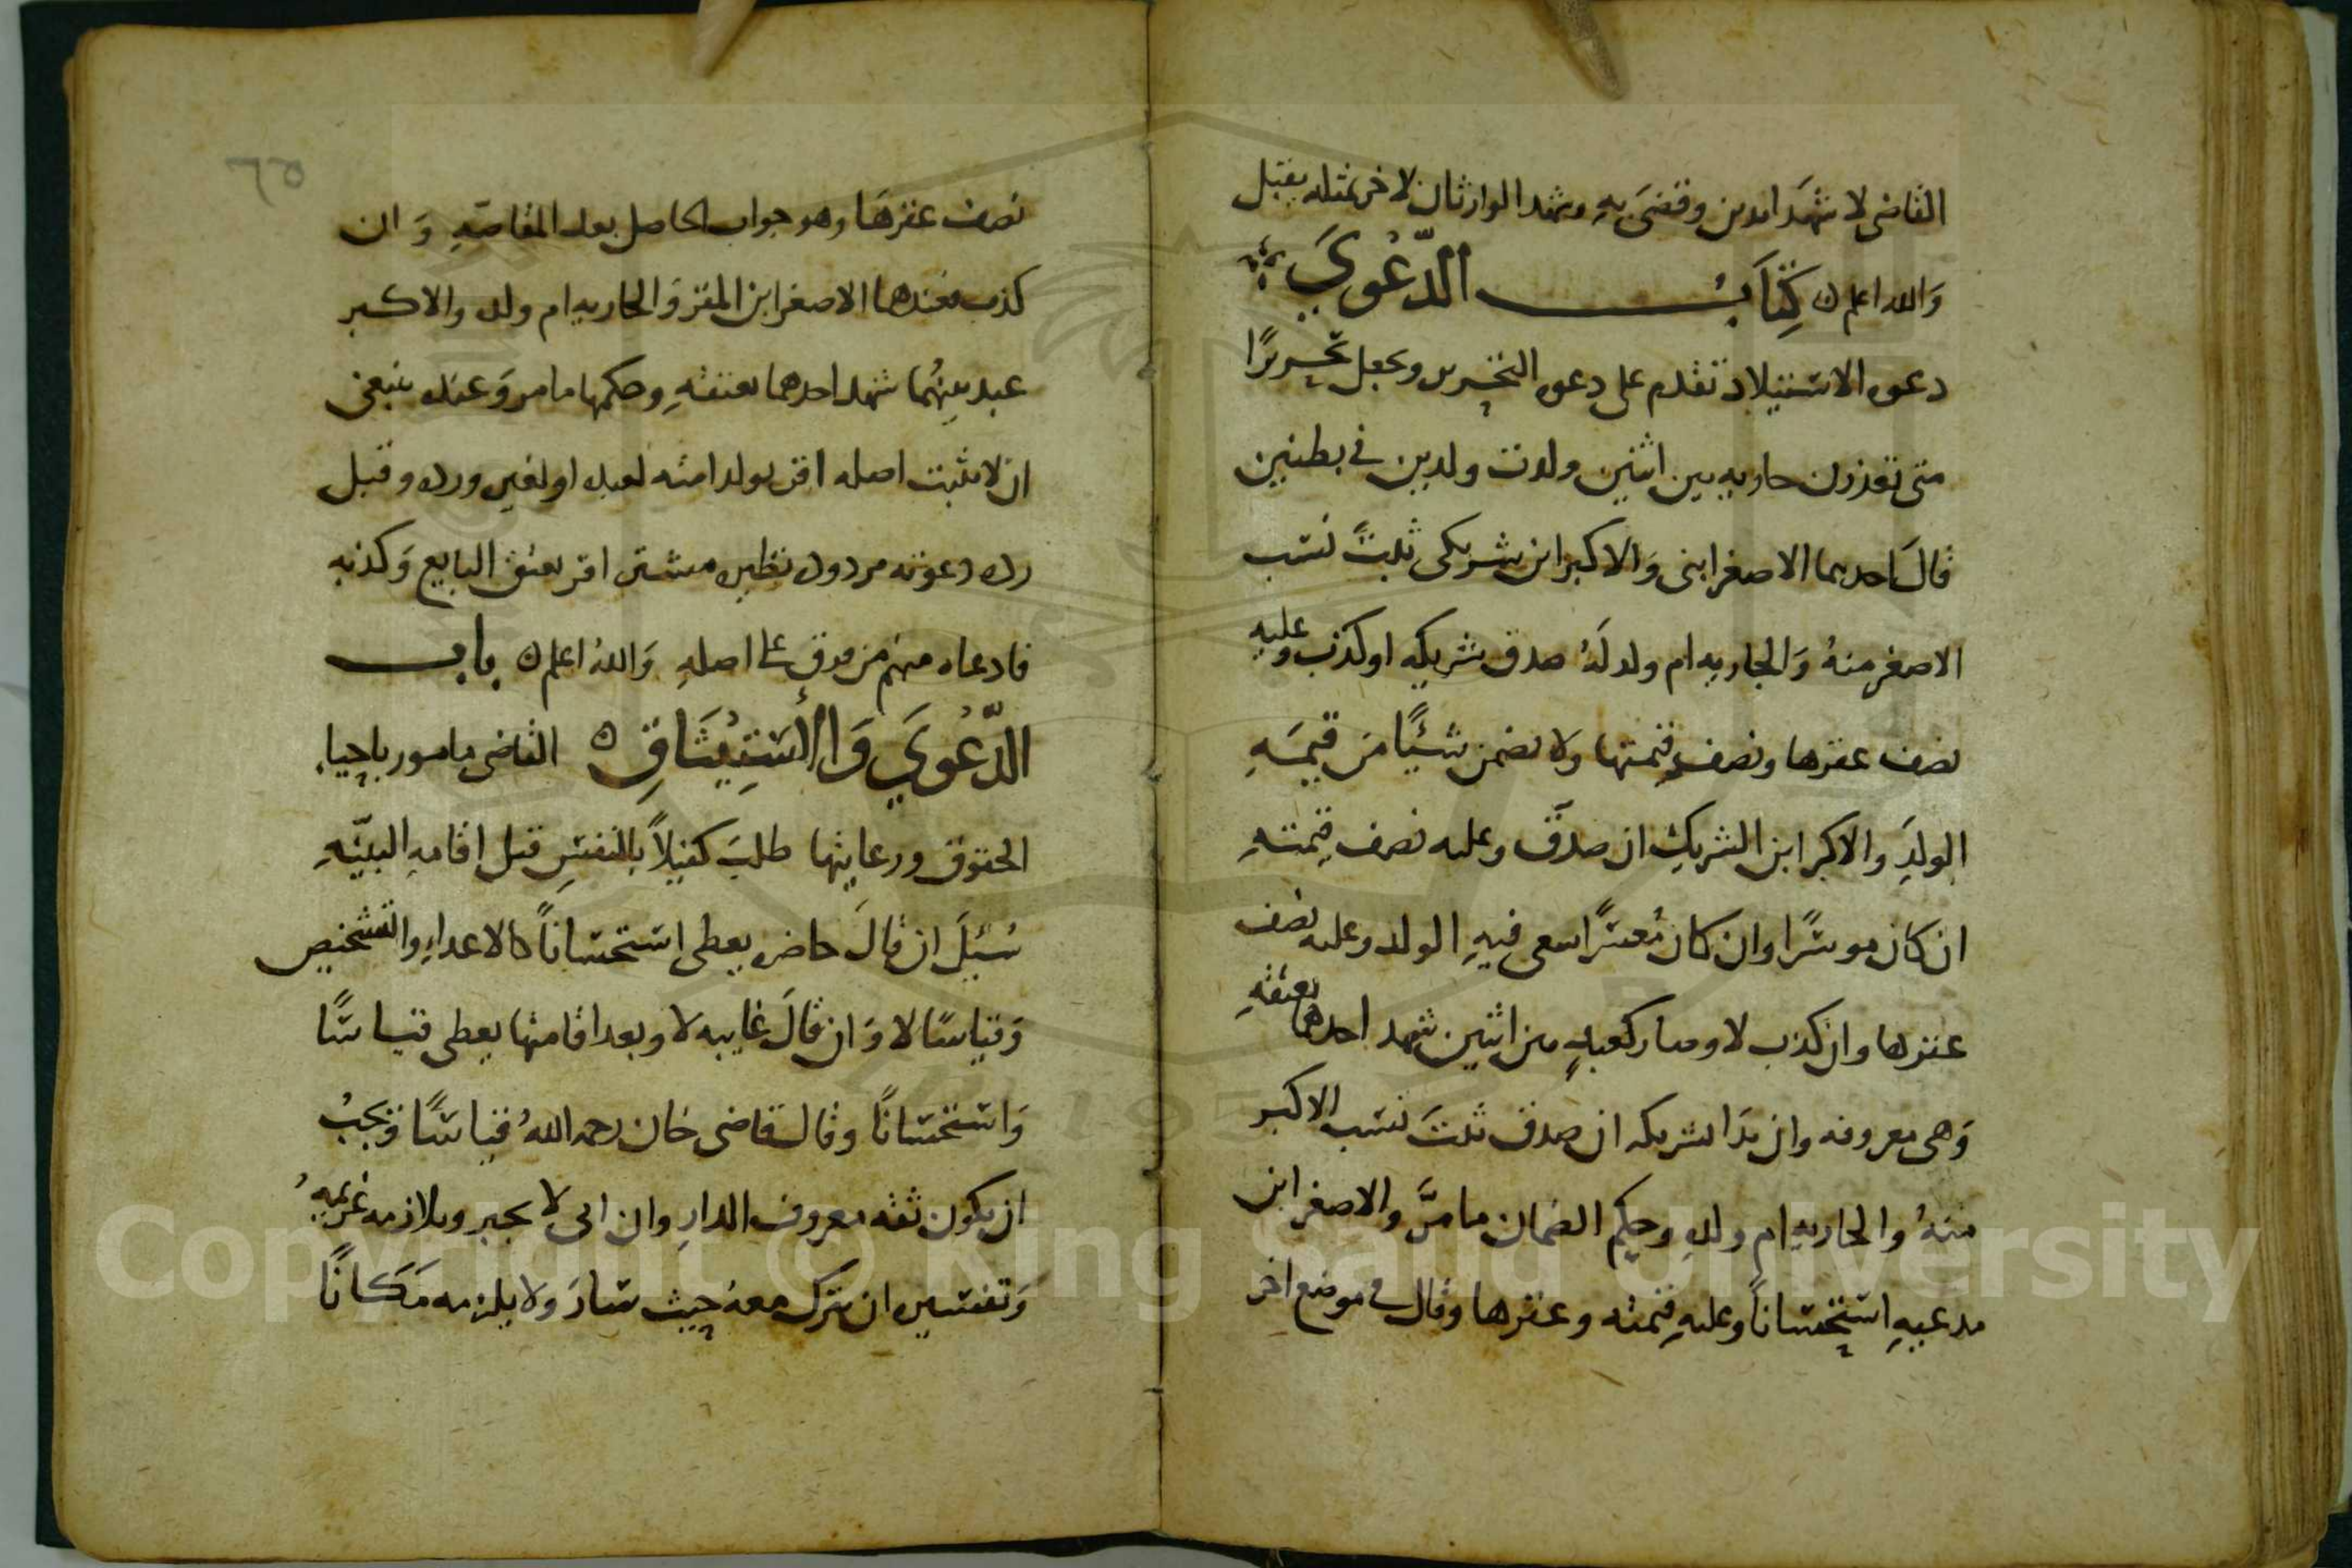 القاضى لا شهدا بدين وقضى به وشهد الوارثان لاخر بمثله يقبل
والله اعلم كتاب الدعوي
دعوه الاستيلاد تقدم على دعوه التحرير وتجعل تحريرًا
متى تعذرت جاريه بين اثنين ولدت ولدين في بطنين
قال احدهما الاصغر ابنى والاكبر ابن شريكى ثبت نسب
الاصغر منه والجاريه ام ولد له صدق شريكه او كذب وعليه
نصف عقرها ونصف قيمتها ولا يضمن شيئًا من قيمه
الولد والاكبر ابن الشريك ان صدق وعليه نصف قيمته
ان كان موسرًا وان كان معسرًا سعى فيه الولد وعليه نصف
عقرها وان كذب لا وصار كعبد بين اثنين شهد احدهما بعتقه
وهى معروفه وان بدا بشريكه ان صدق ثبت نسب الاكبر
منه والجاريه ام ولده وحكم الضمان ما مر والاصغر ابن
مدعيه استحسانًا وعليه قيمته وعقرها وقال في موضع اخر
٦٥
نصف عقرها وهو جواب الحاصل بعد المقاصه وان
كذب فعندهما الاصغر ابن المقر والجاريه ام ولده والاكبر
عبد بينهما شهد احدهما بعتقه وحكمها ما مر وعنده ينبغى
ان لا يثبت اصله اقر بولد امته لعبده او لغيره ورده وقبل
رده دعوته مردوده نظيره مشتر اقر بعتق البايع وكذبه
فادعاه منهم من فرق على اصله والله اعلم باب
الدعوي والاستيثاق القاضى مامور باحياء
الحقوق ورعايتها طلب كفيلاً بالنفس قبل اقامه البينه
سئل ان قال حاضر يعطى استحسانًا كالاعداء والتشخيص
وقياسًا لا وان قال غايبه لا وبعد اقامتها يعطى قياسًا
واستحسانًا وقال قاضى خان رحمه الله قياسًا ويجب
ان يكون ثقه معروف الدار وان ابى لا يجبر ويلازمه غريمه
وتفسيره ان يترك معه حيث سار ولا يلزمه مكانًا
Copyright © King Saud University